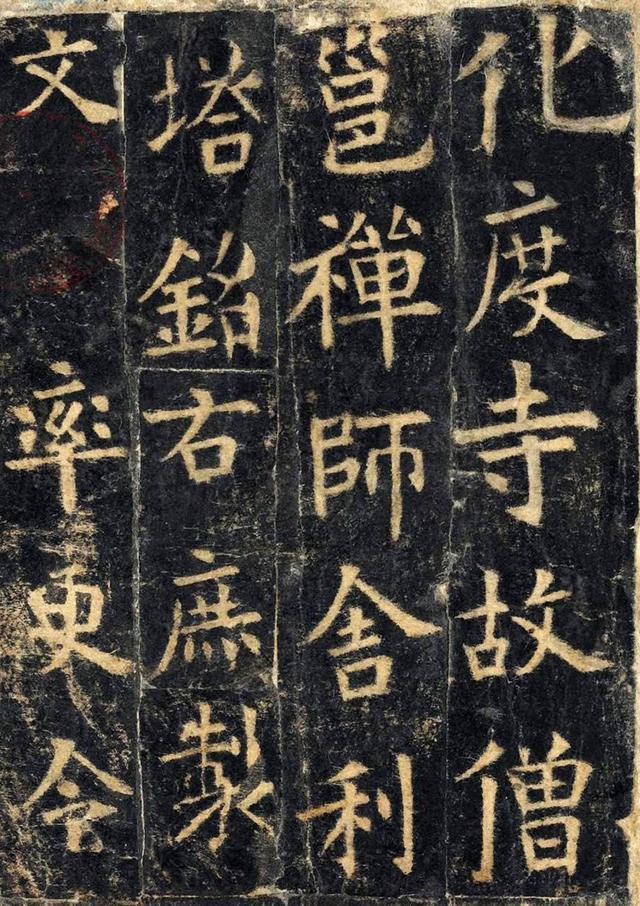 化度寺故僧
邕禪師舎利
塔銘右庶製
文率更令